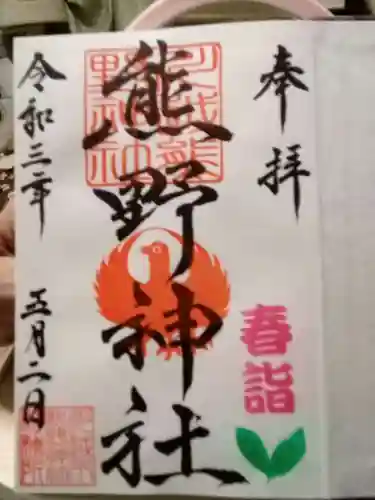 奉拝
春詣
熊野神社
令和三年 五月二日